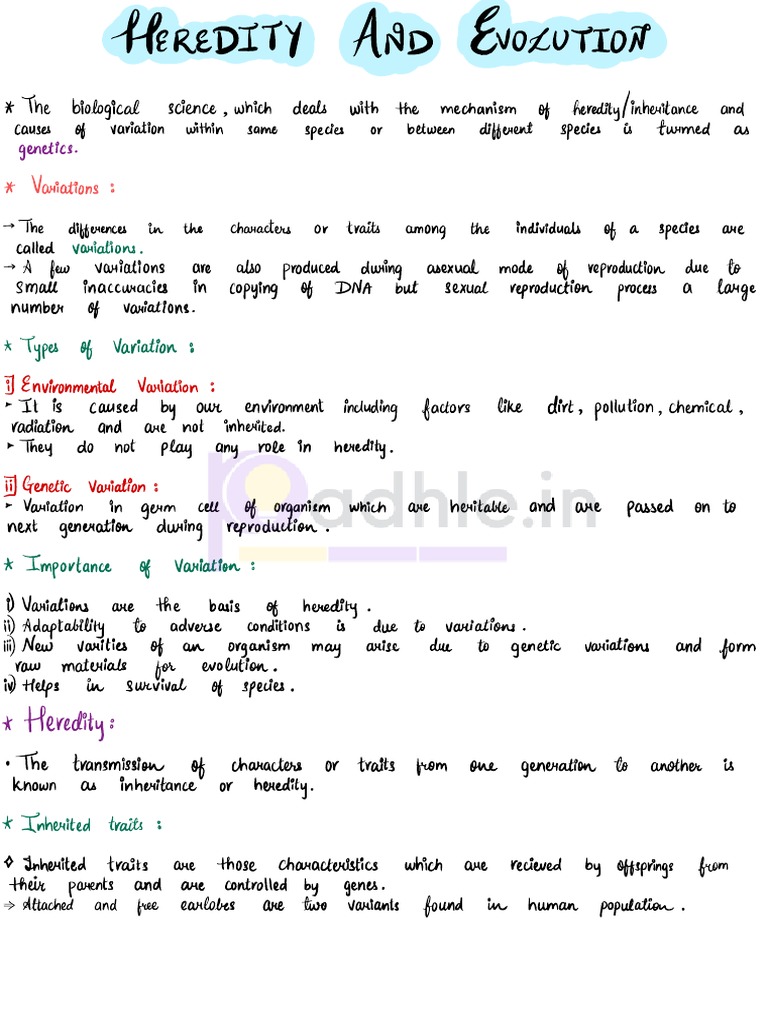 HEREDITY AND EVOLUTION
* The biological science, which deals with the mechanism of heredity/inheritance and
causes of variation within same species or between different species is turmed as
genetics.
* Variations :
→ The differences in the characters or traits among the individuals of a species are
called variations.
→ A few variations are also produced during asexual mode of reproduction due to
small inaccuracies in copying of DNA but sexual reproduction process a large
number of variations.
* Types of Variation :
i] Environmental Variation :
➤ It is caused by our environment including factors like dirt, pollution, chemical,
radiation and are not inherited.
➤ They do not play any role in heredity.
ii] Genetic Variation :
➤ Variation in germ cell of organism which are heritable and are passed on to
next generation during reproduction.
padhle.in
* Importance of Variation :
i) Variations are the basis of heredity.
ii) Adaptability to adverse conditions is due to variations.
iii) New varities of an organism may arise due to genetic variations and form
raw materials for evolution.
iv) Helps in survival of species.
* Heredity:
• The transmission of characters or traits from one generation to another is
known as inheritance or heredity.
* Inherited traits :
◇ Inherited traits are those characteristics which are recieved by offsprings from
their parents and are controlled by genes.
⇒ Attached and free earlobes are two variants found in human population.